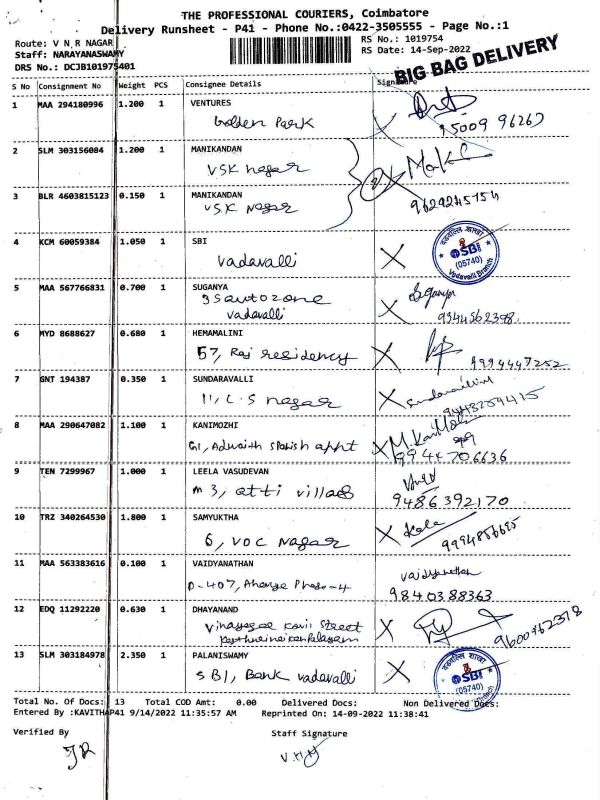 THE PROFESSIONAL COURIERS, Coimbatore
Delivery Runsheet - P41 - Phone No.:0422-3505555 - Page No.:1
Route: V N R NAGAR
RS No.: 1019754
Staff: NARAYANASWAMY
RS Date: 14-Sep-2022
DRS No.: DCJB101975401
BIG BAG DELIVERY
S No Consignment No Weight PCS Consignee Details Signature
1 MAA 294180996 1.200 1 VENTURES
Golden Park
2 SLM 303156084 1.200 1 MANIKANDAN
VSK nagar
3 BLR 4603815123 0.150 1 MANIKANDAN
VSK Nagar
9629245154
4 KCM 60059384 1.050 1 SBI
Vadavalli
SBI
(05740)
Vadavalli Branch
5 MAA 567766831 0.700 1 SUGANYA
Suganya
vadavalli
9344562398
6 MYD 8688627 0.680 1 HEMAMALINI
57, Raj residency
9994447252
7 GNT 194387 0.350 1 SUNDARAVALLI
11, L.S nagar
Sundaravalli
9443254415
8 MAA 290647082 1.100 1 KANIMOZHI
appt
M. Kani Mozhi
9944706636
9 TEN 7299967 1.000 1 LEELA VASUDEVAN
m 3, atti
9486392170
10 TRZ 340264530 1.800 1 SAMYUKTHA
6, VOC Nagar
Kala
11 MAA 563383616 0.100 1 VAIDYANATHAN
D-407,
vaidyanathan
9840388363
12 EDQ 11292220 0.630 1 DHAYANAND
Street
9600962378
13 SLM 303184978 2.350 1 PALANISWAMY
SBI, Bank vadavalli
SBI
(05740)
Total No. Of Docs: 13 Total COD Amt: 0.00 Delivered Docs: Non Delivered Docs:
Entered By :KAVITHAP41 9/14/2022 11:35:57 AM Reprinted On: 14-09-2022 11:38:41
Verified By
Staff Signature